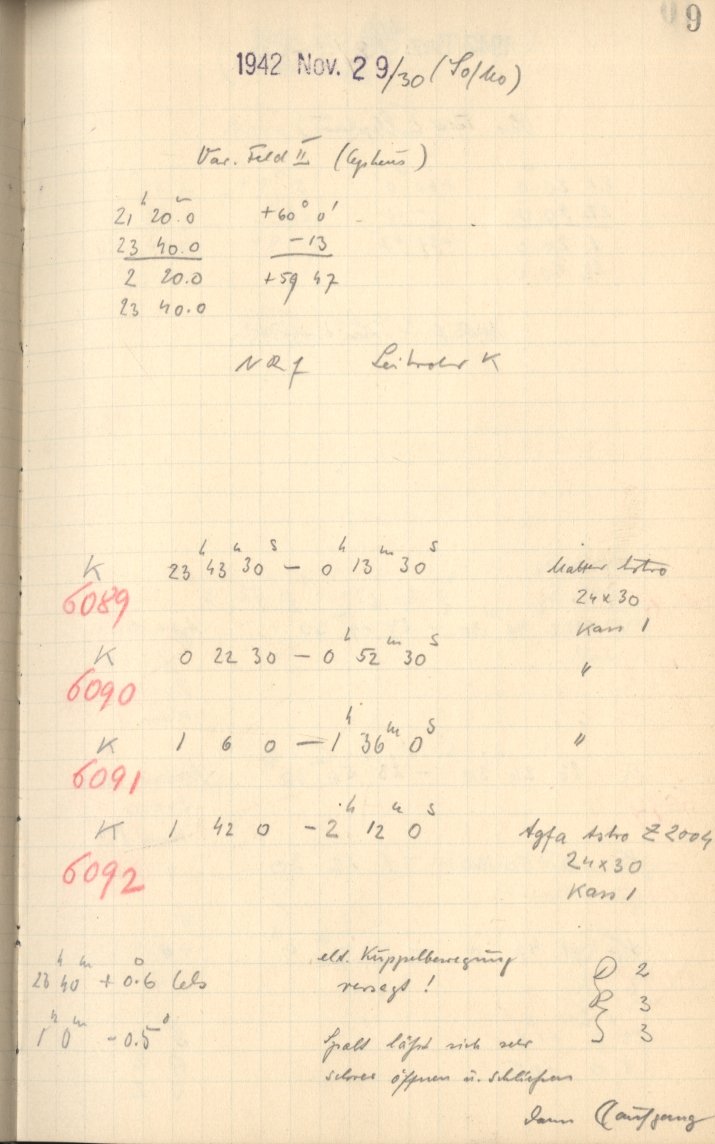 9
1942 Nov. 29/30 (So/Mo)
Var. Feld II (Cepheus)
21ʰ 20.ᵐ0 +60° 0'
23 40.0 −13
2 20.0 +59 47
23 40.0
Leitrohr K
K 23ʰ 43ᵐ 30ˢ − 0ʰ 13ᵐ 30ˢ Matter Astro
6089 24x30
Kass 1
K 0 22 30 − 0ʰ 52ᵐ 30ˢ "
6090
K 1 6 0 − 1ʰ 36ᵐ 0ˢ "
6091
K 1 42 0 − 2ʰ 12ᵐ 0ˢ Agfa Astro Z 2004
6092 24x30
Kass 1
23ʰ 40ᵐ + 0.°6 Cels elt. Kuppelbewegung 2
versagt! 3
1ʰ 0ᵐ − 0.5° 3
Spalt läßt sich sehr
schwer öffnen u. schließen
dann ☾aufgang